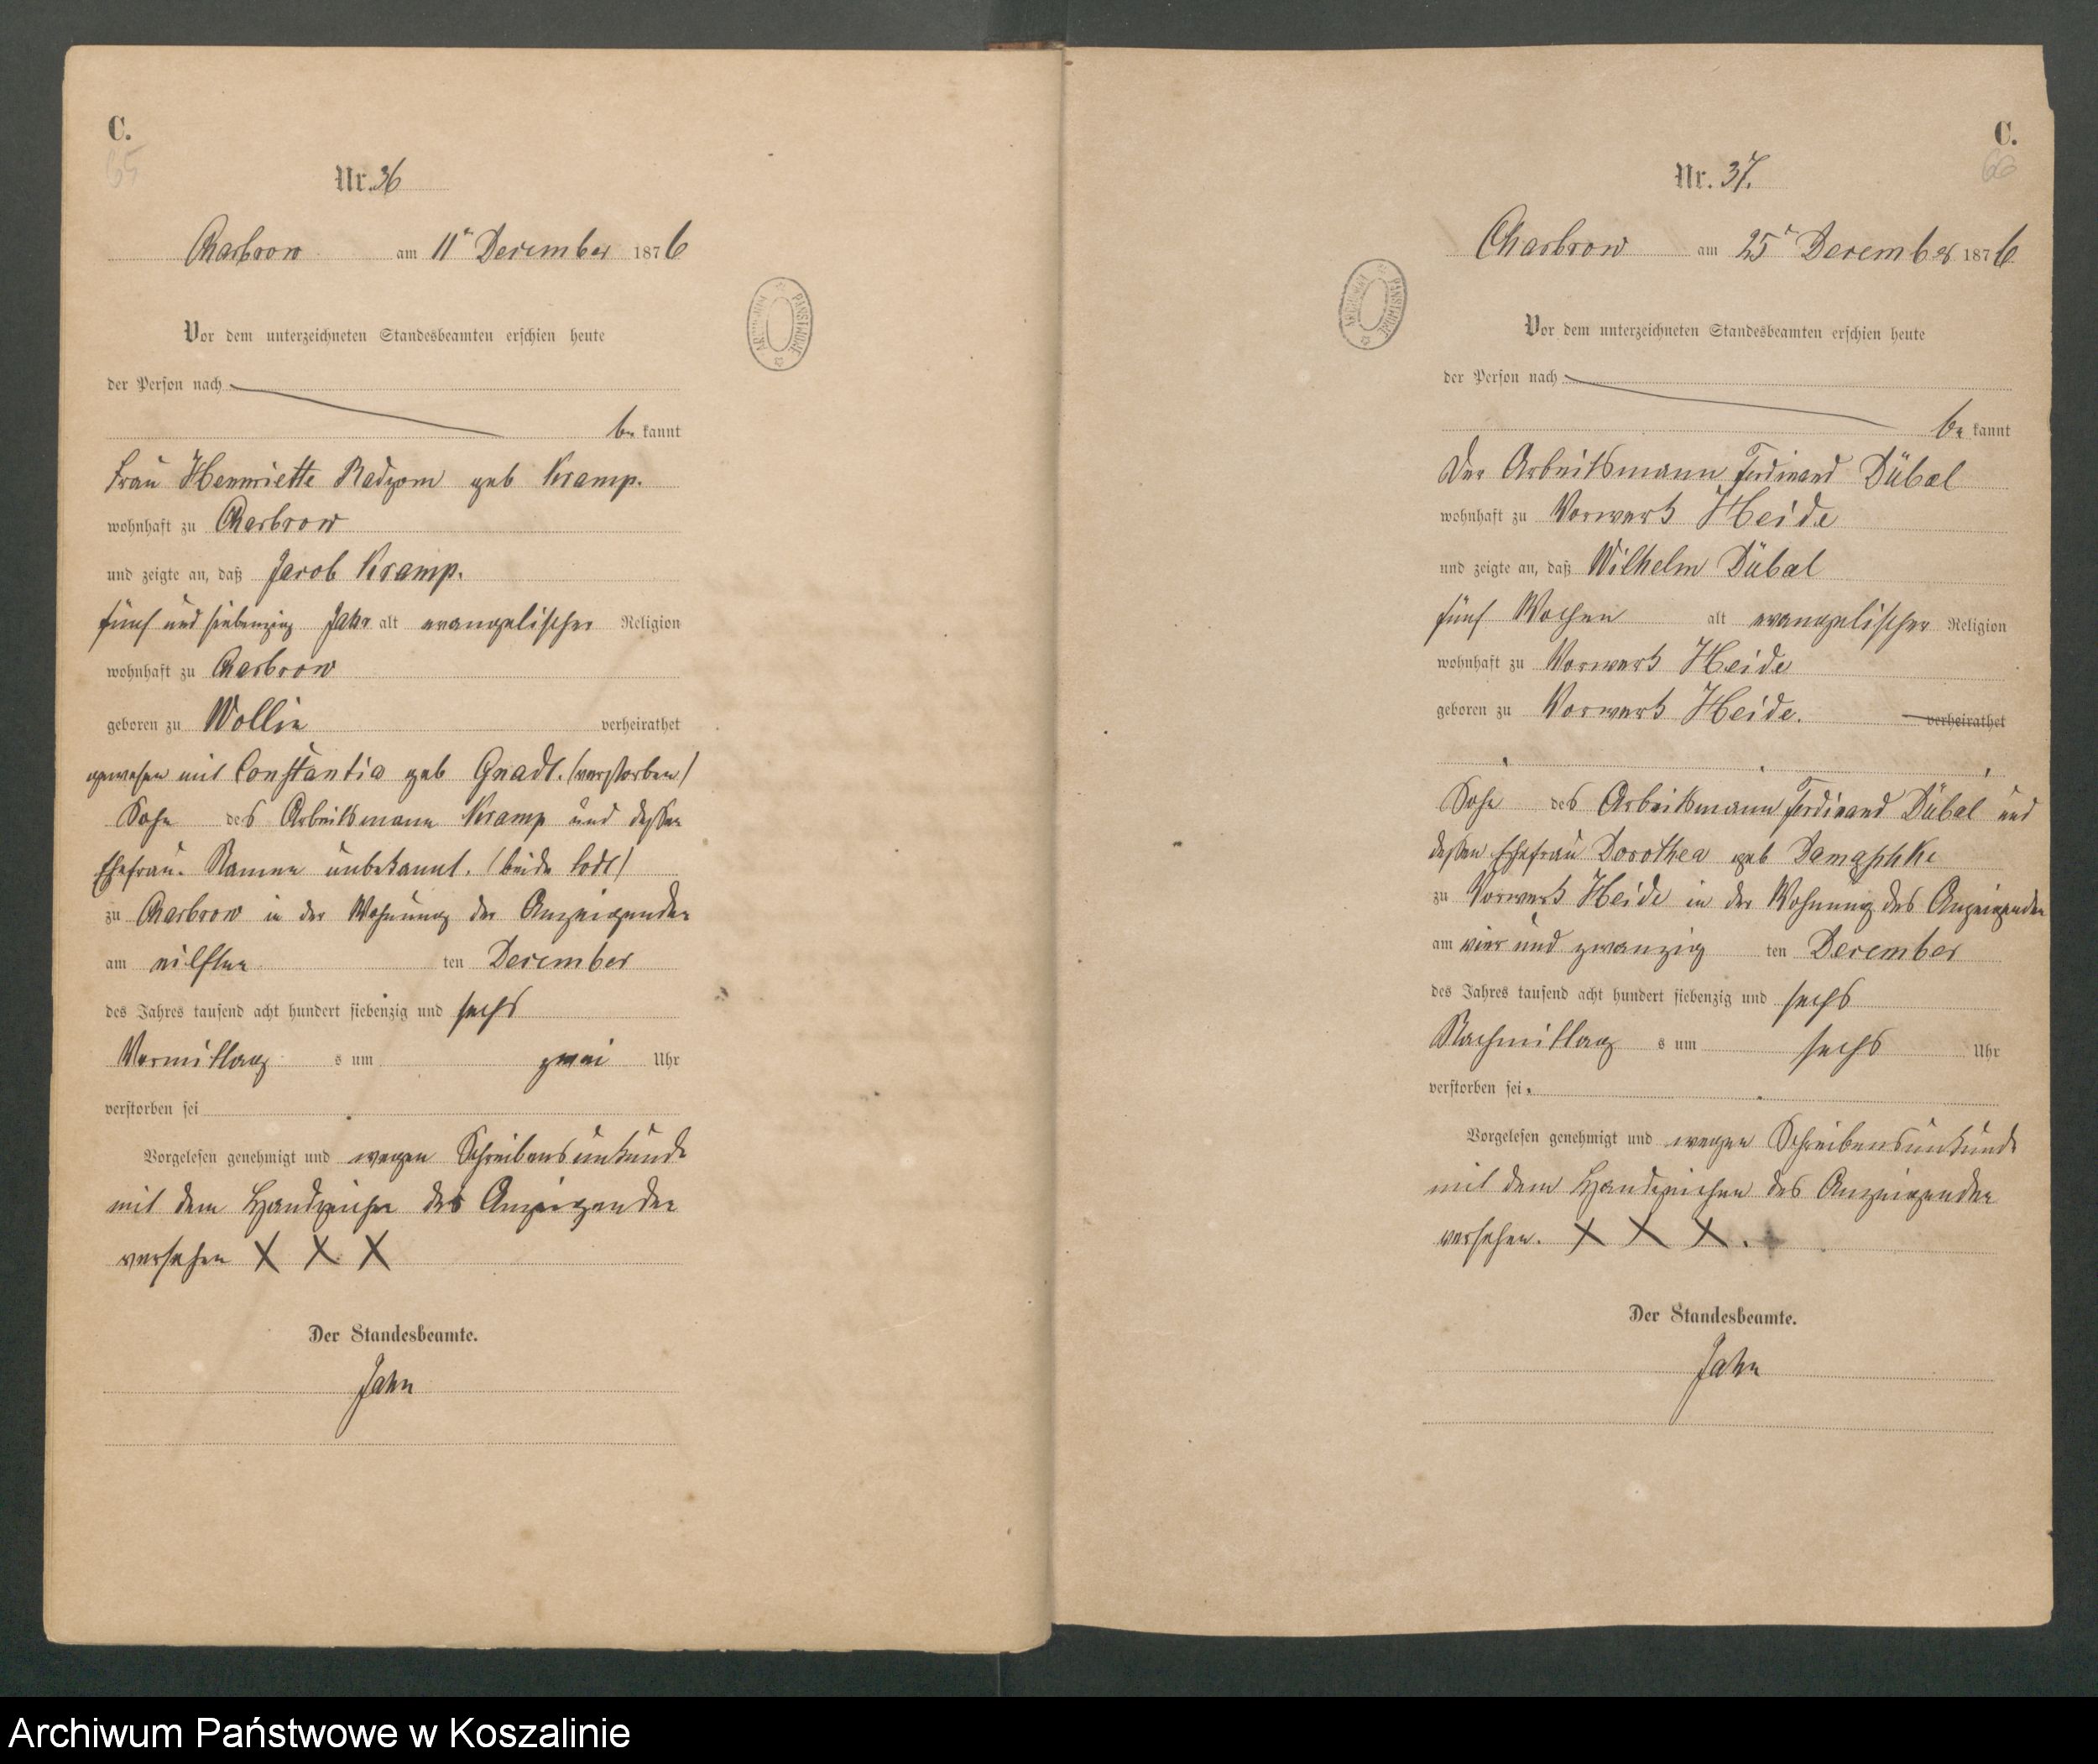 C.
65
Nr. 36
Charbrow am 11ᵗ December 1876
ARCHIWUM PAŃSTWOWE
Vor dem unterzeichneten Standesbeamten erschien heute
der Person nach
be kannt
Frau Henriette Radzom geb Kramp.
wohnhaft zu Charbrow
und zeigte an, daß Jacob Kramp.
fünf und siebenzig Jahr alt evangelischer Religion
wohnhaft zu Charbrow
geboren zu Wollin verheirathet
gewesen mit Constantia geb Gnadt. (verstorben)
Sohn des Arbeitsmann Kramp und dessen
Ehefrau. Namen unbekannt. (beide todt)
zu Charbrow in der Wohnung der Anzeigenden
am eilften ten December
des Jahres tausend acht hundert siebenzig und sechs
Vormittag s um zwei Uhr
verstorben sei
Vorgelesen genehmigt und wegen Schreibensunkunde
mit dem Handzeichen des Anzeigenden
versehen X X X
Der Standesbeamte.
Jahn
C.
66
Nr. 37.
Charbrow am 25ᵗ December 1876
ARCHIWUM PAŃSTWOWE
Vor dem unterzeichneten Standesbeamten erschien heute
der Person nach
be kannt
Der Arbeitsmann Ferdinand Dübal
wohnhaft zu Vorwerk Heide
und zeigte an, daß Wilhelm Dübal
fünf Wochen alt evangelischer Religion
wohnhaft zu Vorwerk Heide
geboren zu Vorwerk Heide. verheirathet
Sohn des Arbeitsmann Ferdinand Dübal und
dessen Ehefrau Dorothea geb Damaschke
zu Vorwerk Heide in der Wohnung des Anzeigenden
am vier und zwanzig ten December
des Jahres tausend acht hundert siebenzig und sechs
Nachmittag s um sechs Uhr
verstorben sei.
Vorgelesen genehmigt und wegen Schreibensunkunde
mit dem Handzeichen des Anzeigenden
versehen. X X X.
Der Standesbeamte.
Jahn
Archiwum Państwowe w Koszalinie